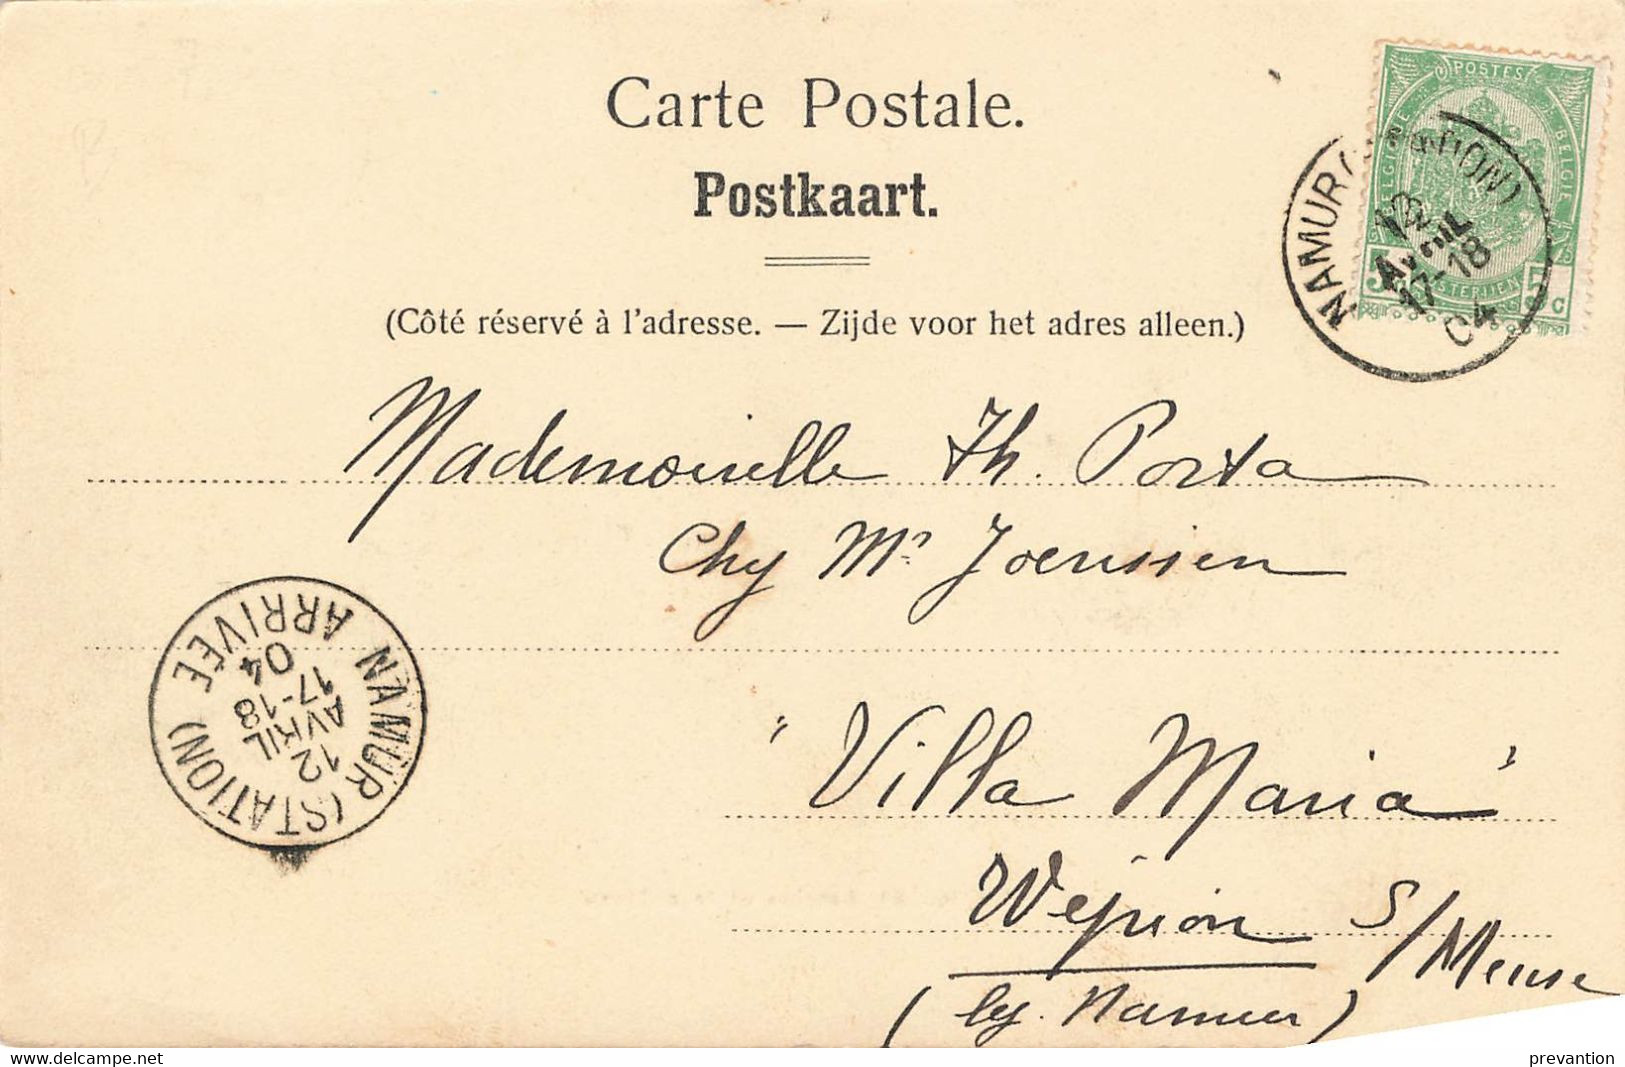 Carte Postale.
Postkaart.
(Côté réservé à l'adresse. — Zijde voor het adres alleen.)
POSTES
BELGIE
5 5 c
NAMUR (STATION)
12
AVRIL
17-18
04
Mademoiselle Th. Porta
Chy Mr Joerissen
"Villa Maria"
Wépion S/Meuse
(lez. Namur)
NAMUR (STATION)
12
AVRIL
17-18
04
ARRIVÉE
prevantion